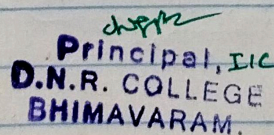 Principal, IIC
D.N.R. COLLEGE
BHIMAVARAM.